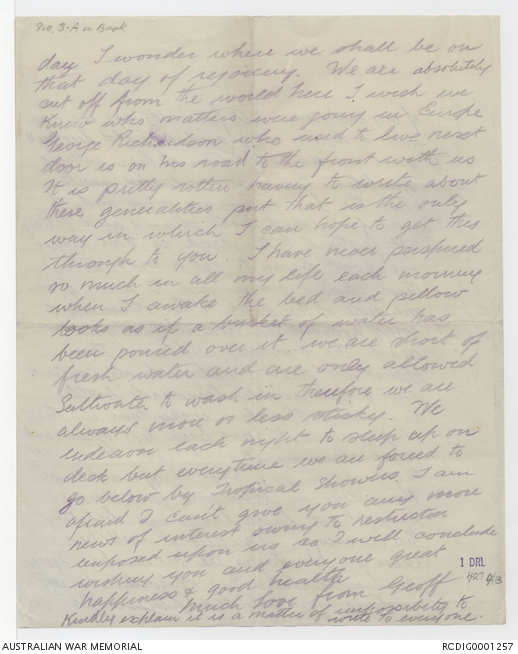 No. 3-A in Book
day I wonder where we shall be on
that day of rejoicing. We are absolutely
cut off from the world here I wish we
knew who matters were going in Europe
George Richardson who used to live next
door is on his road to the front with us
It is pretty rotten having to write about
these generalities but that is the only
way in which I can hope to get this
through to you. I have never perspired
so much in all my life each morning
when I awake the bed and pillow
looks as if a bucket of water has
been poured over it. we are short of
fresh water and are only allowed
Saltwater to wash in therefore we are
always more or less sticky. We
endeavor each night to sleep up on
deck but everytime we are forced to
go below by Tropical Showers. I am
afraid I can't give you any more
news of interest owing to restriction
imposed upon us so I will conclude
wishing you and everyone great
happiness & good health
much love from Geoff
Kindly explain it is a matter of impossibility to
write to everyone.
1 DRL
427
AUSTRALIAN WAR MEMORIAL
RCDIG0001257